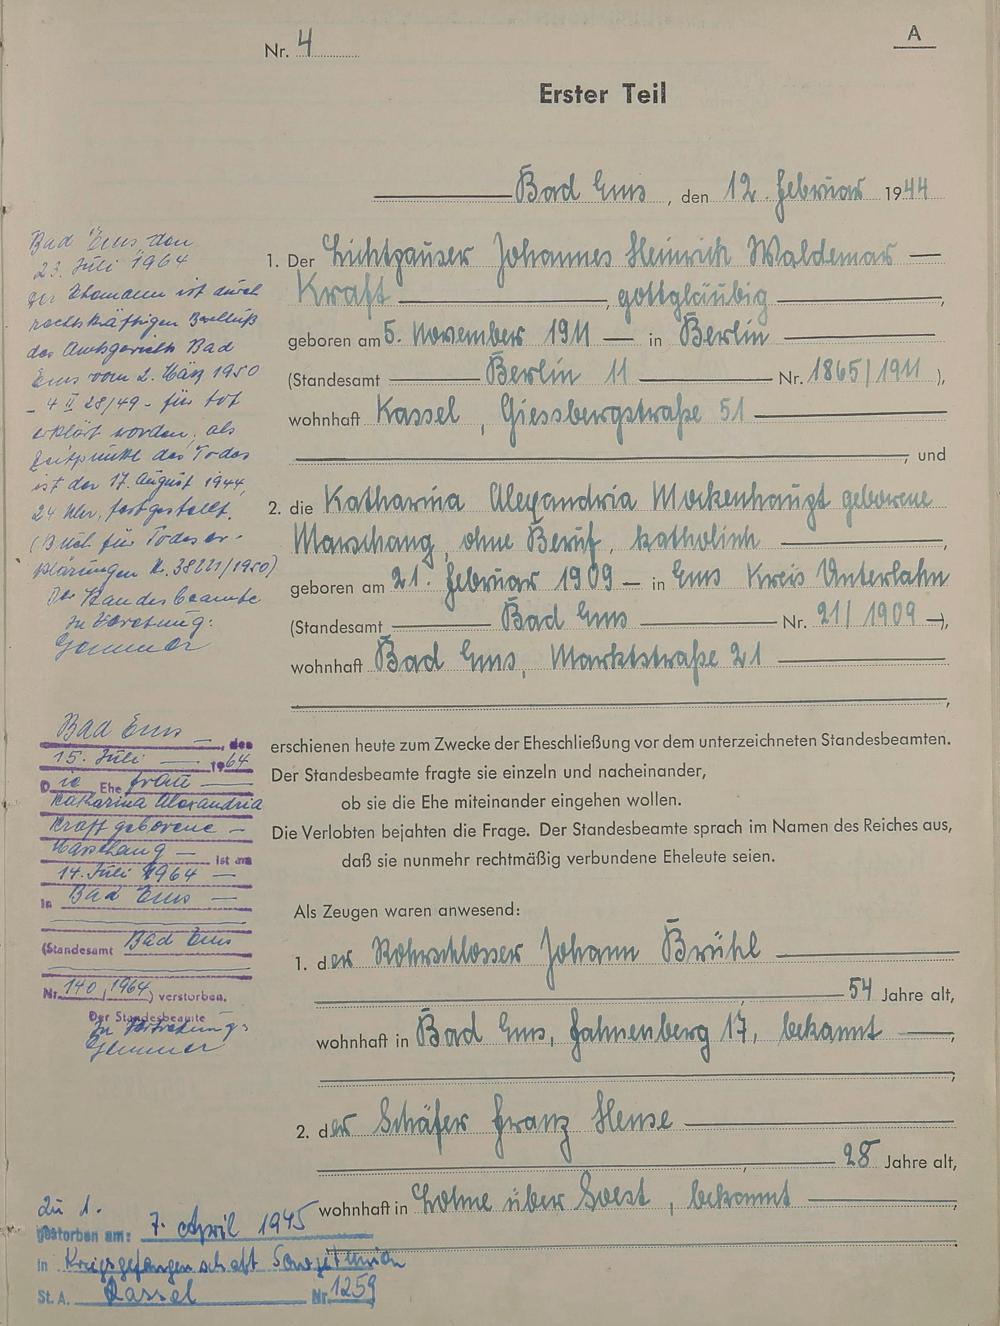 Nr. 4
A
Erster Teil
Bad Ems, den 12. Februar 1944
1. Der Lichtpauser Johannes Heinrich Waldemar
Kraft, gottgläubig,
geboren am 5. November 1911 in Berlin
(Standesamt Berlin 11 Nr. 1865/1911),
wohnhaft Kassel, Giessbergstraße 51
, und
2. die Katharina Alexandria Mockenhaupt geborene
Marschang, ohne Beruf, katholisch,
geboren am 21. Februar 1909 in Ems Kreis Unterlahn
(Standesamt Bad Ems Nr. 21/1909),
wohnhaft Bad Ems, Marktstraße 21
,
erschienen heute zum Zwecke der Eheschließung vor dem unterzeichneten Standesbeamten.
Der Standesbeamte fragte sie einzeln und nacheinander,
ob sie die Ehe miteinander eingehen wollen.
Die Verlobten bejahten die Frage. Der Standesbeamte sprach im Namen des Reiches aus,
daß sie nunmehr rechtmäßig verbundene Eheleute seien.
Als Zeugen waren anwesend:
1. der Rohrschlosser Johann Brühl
, 54 Jahre alt,
wohnhaft in Bad Ems, Fahnenberg 17, bekannt,
,
2. der Schäfer Franz Hense
, 28 Jahre alt,
wohnhaft in Lohne über Soest, bekannt,
Bad Ems den
23. Juli 1964
Der Ehemann ist durch
rechtskräftigen Beschluß
des Amtsgerichts Bad
Ems vom 2. März 1950
- 4 II 28/49 - für tot
erklärt worden, als
Zeitpunkt des Todes
ist der 17. August 1944,
24 Uhr, festgestellt.
(Buch für Todeser-
klärungen N. 38221/1950)
Der Standesbeamte
In Vertretung:
Bad Ems, den
15. Juli 1964
Die Ehefrau
Katharina Alexandria
Kraft geborene
Marschang ist am
14. Juli 1964
in Bad Ems
(Standesamt Bad Ems
Nr. 140/1964) verstorben.
Der Standesbeamte
In Vertretung:
Zu 1.
gestorben am: 7. April 1945
in Kriegsgefangenschaft Sowjetunion
St. A. Kassel Nr. 1259